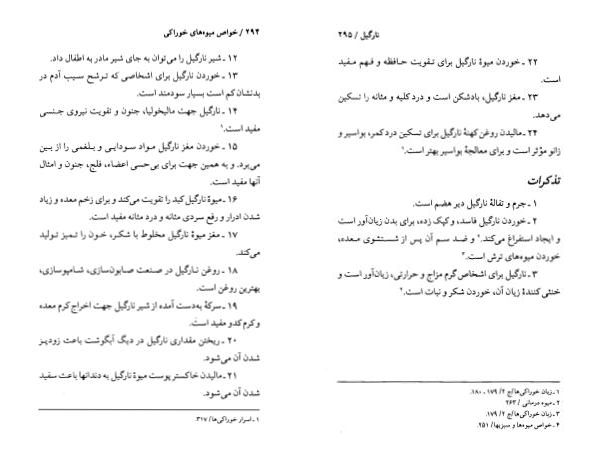 ۲۹۴ / خواص میوه‌های خوراکی
۱۲ ـ شیر نارگیل را می‌توان به جای شیر مادر به اطفال داد.
۱۳ ـ خوردن نارگیل برای اشخاصی که ترشح سیب آدم در
بدنشان کم است بسیار سودمند است.
۱۴ ـ نارگیل جهت مالیخولیا، جنون و تقویت نیروی جنسی
مفید است.۱
۱۵ ـ خوردن مغز نارگیل مواد سودایی و بلغمی را از بین
می‌برد. و به همین جهت برای بی‌حسی اعضاء، فلج، جنون و امثال
آنها مفید است.
۱۶ ـ میوهٔ نارگیل کبد را تقویت می‌کند و برای زخم معده و زیاد
شدن ادرار و رفع سردی مثانه و درد مثانه مفید است.
۱۷ ـ مغز میوهٔ نارگیل مخلوط با شکر، خون را تمیز تولید
می‌کند.
۱۸ ـ روغن نارگیل در صنعت صابون‌سازی، شامپوسازی،
بهترین روغن است.
۱۹ ـ سرکهٔ به‌دست آمده از شیر نارگیل جهت اخراج کرم معده
و کرم کدو مفید است.
۲۰ ـ ریختن مقداری نارگیل در دیگ آبگوشت باعث زودپز
شدن آن می‌شود.
۲۱ ـ مالیدن خاکستر پوست میوهٔ نارگیل به دندانها باعث سفید
شدن آن می‌شود.
۱ ـ اسرار خوراکی‌ها/ ۳۱۷.
نارگیل / ۲۹۵
۲۲ ـ خوردن میوهٔ نارگیل برای تقویت حافظه و فهم مفید
است.
۲۳ ـ مغز نارگیل، بادشکن است و درد کلیه و مثانه را تسکین
می‌دهد.
۲۴ ـ مالیدن روغن کهنهٔ نارگیل برای تسکین درد کمر، بواسیر و
زانو مؤثر است و برای معالجهٔ بواسیر بهتر است.۱
تذکرات
۱ ـ جرم و تفالهٔ نارگیل دیر هضم است.
۲ ـ خوردن نارگیل فاسد، و کپک زده، برای بدن زیان‌آور است
و ایجاد استفراغ می‌کند.۲ و ضد سم آن پس از شستشوی معده،
خوردن میوه‌های ترش است.۳
۳ ـ نارگیل برای اشخاص گرم مزاج و حرارتی، زیان‌آور است و
خنثی کنندهٔ زیان آن، خوردن شکر و نبات است.۴
۱ ـ زبان خوراکی‌ها/ج ۲/ ۱۷۹ ـ ۱۸۰.
۲ ـ میوه درمانی / ۲۶۳
۳ ـ زبان خوراکی‌ها/ج ۲/ ۱۷۹.
۴ ـ خواص میوه‌ها و سبزیها/ ۲۵۱.